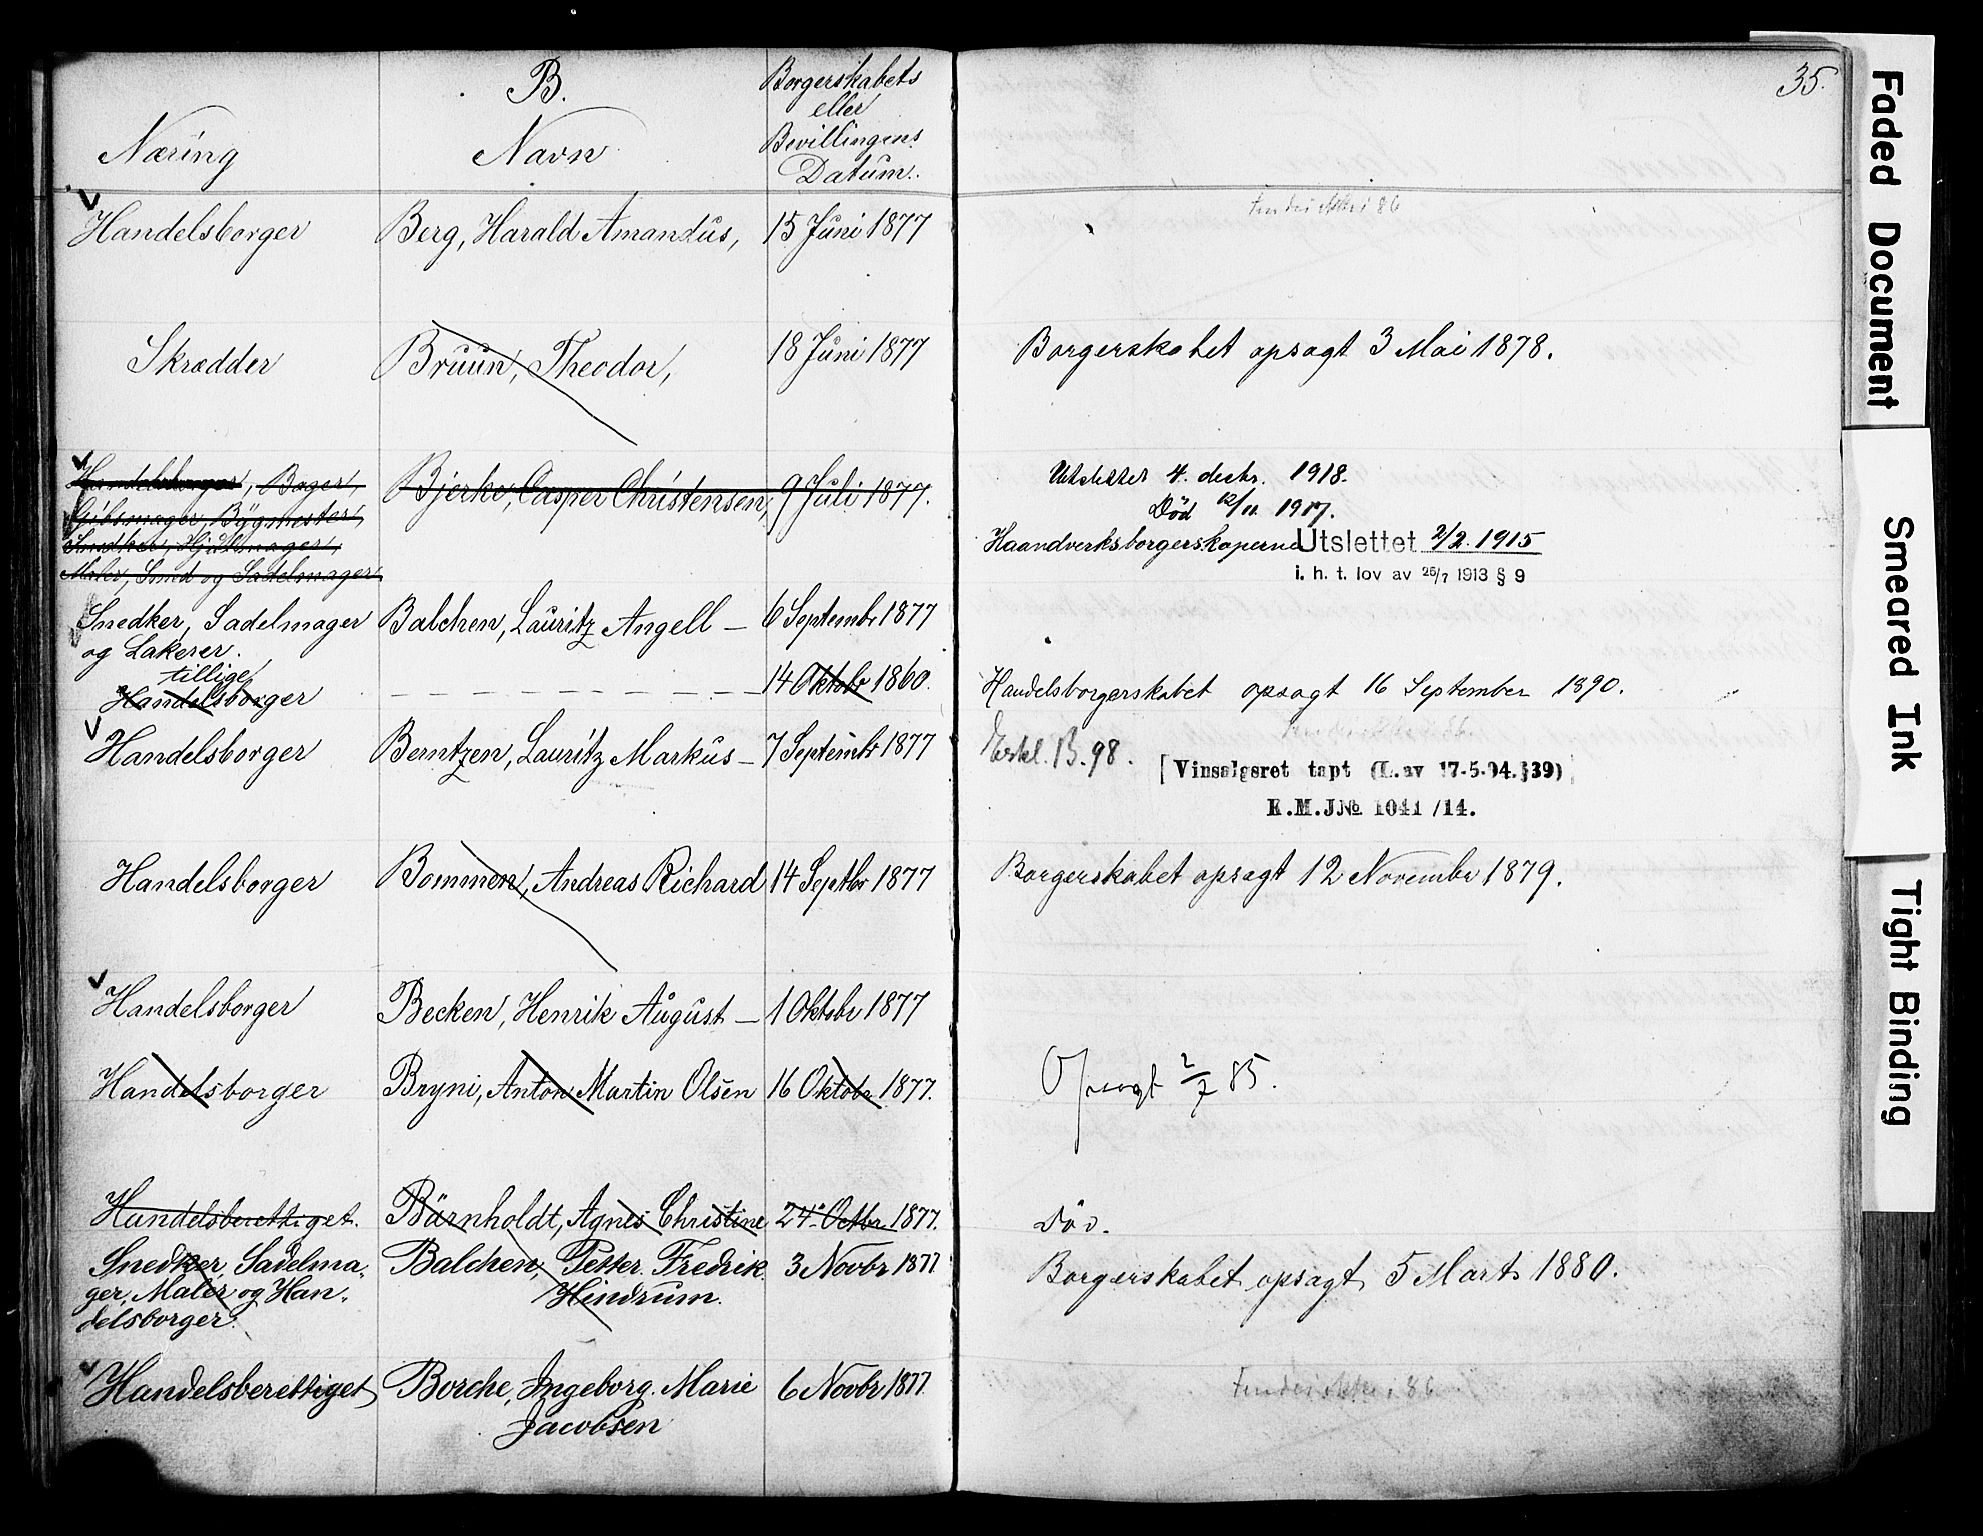 B.
Næring
Navn
Borgerskabets
eller
Bevillingens
Datum.
35.
Handelsborger Berg, Harald Amandus, 15 Juni 1877
Findes ikke i 86
Skrædder Bruun, Theodor, 18 Juni 1877 Borgerskabet opsagt 3 Mai 1878.
Handelsborger, Bager, Bjerke, Casper Christensen, 9 Juli 1877. Utslettet 4. decbr. 1918.
Gibsmager, Bygmester, Død 12/11 1917.
Snedker, Hjulmager, Haandverksborgerskaperne Utslettet 2/2. 1915
Maler, Smed og Sadelmager i. h. t. lov av 25/7 1913 § 9
Snedker, Sadelmager Balchen, Lauritz Angell — 6 Septembr 1877
og Lakerer.
tillige
Handelsborger — — — — — — — — 14 Oktobr 1860. Handelsborgerskabet opsagt 16 September 1890.
Handelsborger Berntzen, Lauritz Markus — 7 Septembr 1877
Findes ikke i 86.
Erkl. B. 98.
[Vinsalgsret tapt (L. av 17-5-04. §39)]
E.M.J№ 1041/14.
Handelsborger Bommen, Andreas Richard 14 Septbr 1877 Borgerskabet opsagt 12 Novembr 1879.
Handelsborger Becken, Henrik August — 1 Oktobr 1877
Handelsborger Bryni, Anton Martin Olsen 16 Oktobr 1877. Opsagt 2/7 85.
Handelsberettiget. Bärnholdt, Agnes Christine 24 Octbr. 1877. Død.
Snedker, Sadelma- Balchen, Petter Fredrik 3 Novbr 1877 Borgerskabet opsagt 5 Marts 1880.
ger, Maler og Han- Hindrum.
delsborger.
Handelsberettiget Borche, Ingeborg Marie 6 Novbr 1877.
Jacobsen
Findes ikke i 86
Faded Document
Smeared Ink
Tight Binding